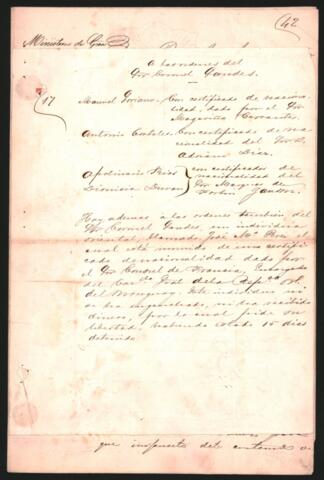 42
Ministerio de
A las ordenes del
Sor Coronel Gaudes.
17
Manuel Soriano. Con certificado de nacionalidad, dado por el Sor
Magarinos Cervantes.
Antonio Con certificado de nacionalidad del Sor D.
Adriano Diaz.
Apolinario Rios
Dionicia Duran
con certificados de
nacionalidad del
Sor Marquez de
Hay ademas á las ordenes tambien del
Sor Coronel Gaudes, un individuo
oriental, llamado José Ma. el
cual está munido de un certificado de nacionalidad dado por
el Sor Consul de Francia, Encargado
del Con. Gral de la Repca. Otl.
del Uruguay. Este individuo ni
se ha enganchado, ni ha recibido
dinero, por lo cual pide su
libertad, habiendo estado 15 dias
detenido.
que impuesto del contenido